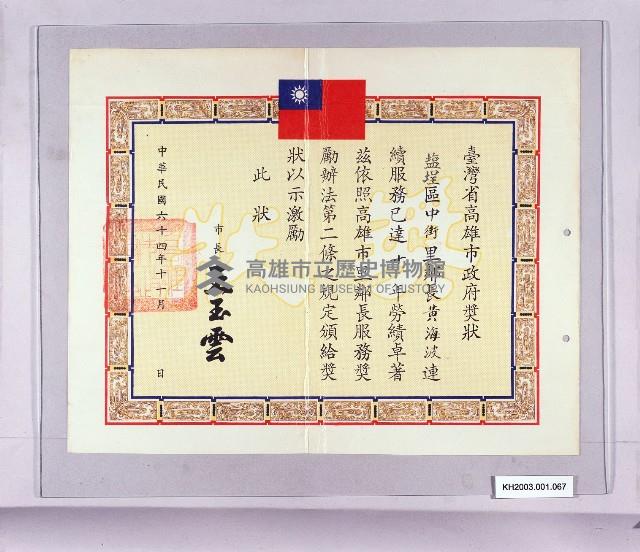 臺灣省高雄市政府獎狀
鹽埕區中街里鄰長黃海波連
續服務已達十年勞績卓著
茲依照高雄市里鄰長服務獎
勵辦法第二條之規定頒給獎
狀以示激勵
此狀
市長 王玉雲
中華民國六十四年十一月 日
獎狀
高雄市立歷史博物館
KAOHSIUNG MUSEUM OF HISTORY
KH2003.001.067